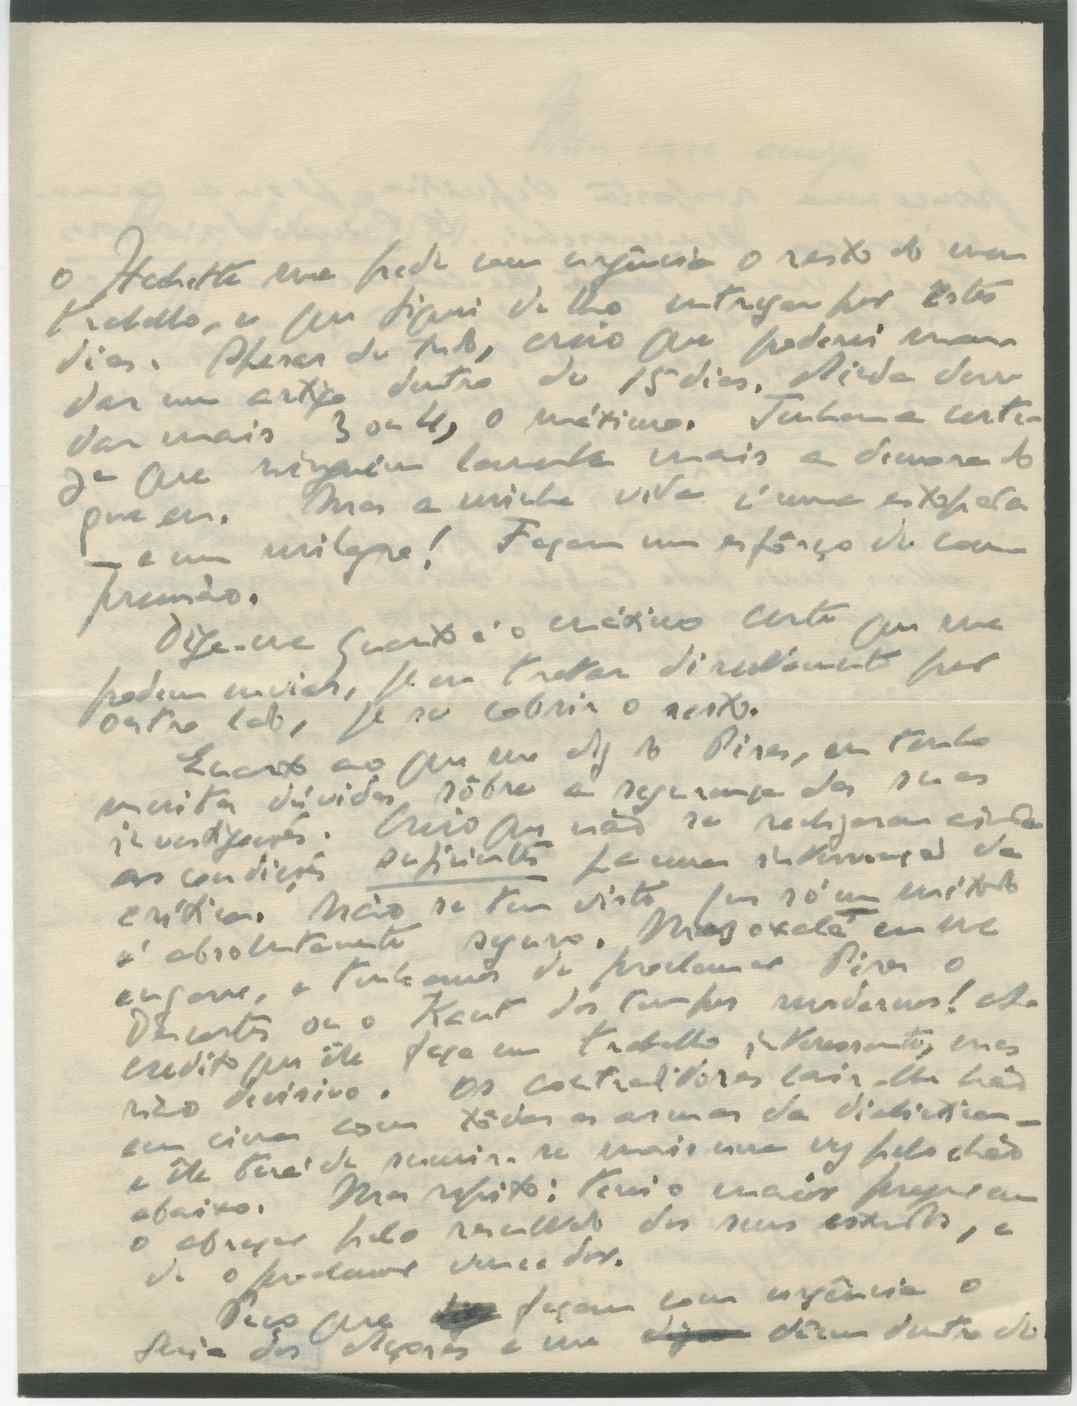 O Hachette me pede com urgência o resto do meu
trabalho, e fiquei de lho entregar por êstes
dias. Apesar de tudo, creio que poderei man-
dar um artigo dentro de 15 dias. Ainda devo
dar mais 3 ou 4, o máximo. Tenham a certe-
za que ninguém lamenta mais a demora do
que eu. Mas a minha vida é uma estopada
— e um milagre! Façam um esfôrço de com-
preensão.
Diga-me quanto é o máximo certo que me
podem enviar, p.ª eu tratar directamente por
outro lado, p.ª se cobrir o resto.
Quanto ao que me diz do Pires, eu tenho
muitas dúvidas sôbre a segurança das suas
investigações. Creio que não se realizaram ainda
as condições suficientes p.ª uma intervenção da
crítica. Não se tem visto que só um método
é absolutamente seguro. Mas oxalá eu me
engane, e tenhamos de proclamar Pires o
Descartes ou o Kant dos tempos modernos! A-
credito que êle faça um trabalho interessante, mas
não decisivo. Os contraditores cair-lhe-hão
em cima com tôdas as armas da dialéctica —
e êle terá de sumir-se mais uma vez pelo chão
abaixo. Mas repito: terei o maior prazer em
o abraçar pelo resultado dos seus estudos, e
de o proclamar vencedor.
Peço que façam com urgência o
dos Açores e me dêem dentro de